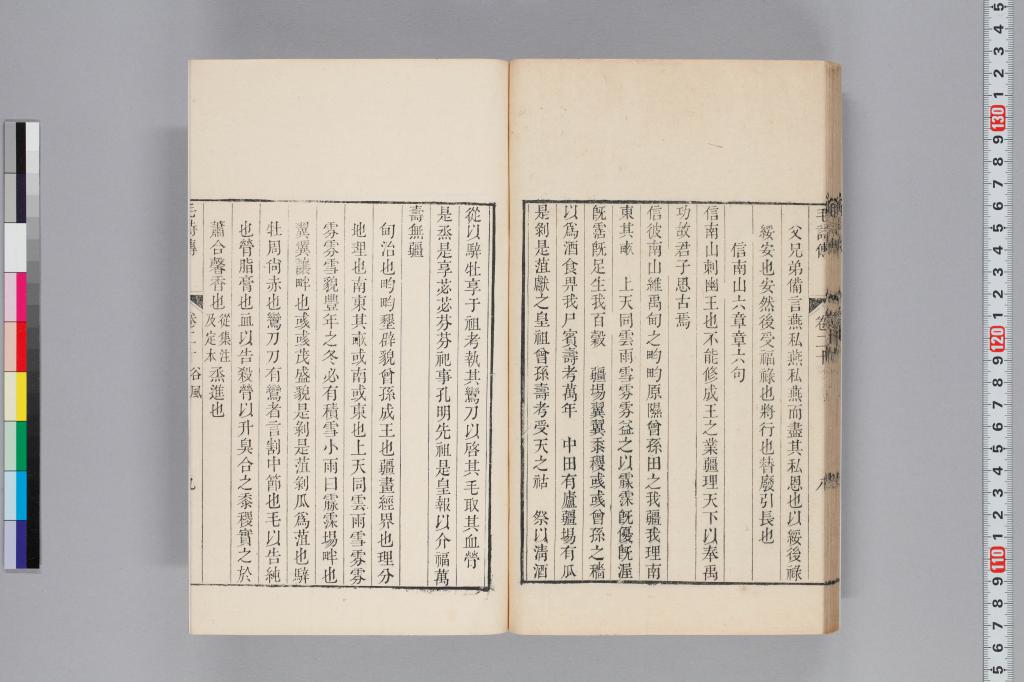 父兄弟備言燕私燕私燕而盡其私恩也以綏後祿
綏安也安然後受福祿也將行也替廢引長也
信南山六章章六句
信南山刺幽王也不能修成王之業疆理天下以奉禹
功故君子思古焉
信彼南山維禹甸之畇畇原隰曾孫田之我疆我理南
東其畞　上天同雲雨雪雰雰益之以霡霂旣優旣渥
旣霑旣足生我百穀　疆埸翼翼黍稷彧彧曾孫之穡
以爲酒食畀我尸賓壽考萬年　中田有廬疆埸有瓜
是剝是菹獻之皇祖曾孫壽考受天之祜　祭以淸酒
從以騂牡享于祖考執其鸞刀以啓其毛取其血膋
是烝是享苾苾芬芬祀事孔明先祖是皇報以介福萬
壽無疆
甸治也畇畇墾辟貌曾孫成王也疆畫經界也理分
地理也南東其畞或南或東也上天同雲雨雪雰雰
雰雰雪貌豐年之冬必有積雪小雨曰霡霂埸畔也
翼翼讓畔也彧彧茂盛貌是剝是菹剝瓜爲菹也騂
牡周尙赤也鸞刀刀有鸞者言割中節也毛以告純
也膋脂膏也血以告殺膋以升臭合之黍稷實之於
蕭合馨香也從集注及定本烝進也
毛詩傳　卷二十　谷風　九